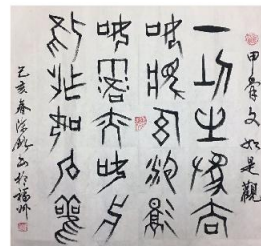 甲骨文如是觀
一切有為法
如夢幻泡影
如露亦如電
應作如是觀
己亥春於福州